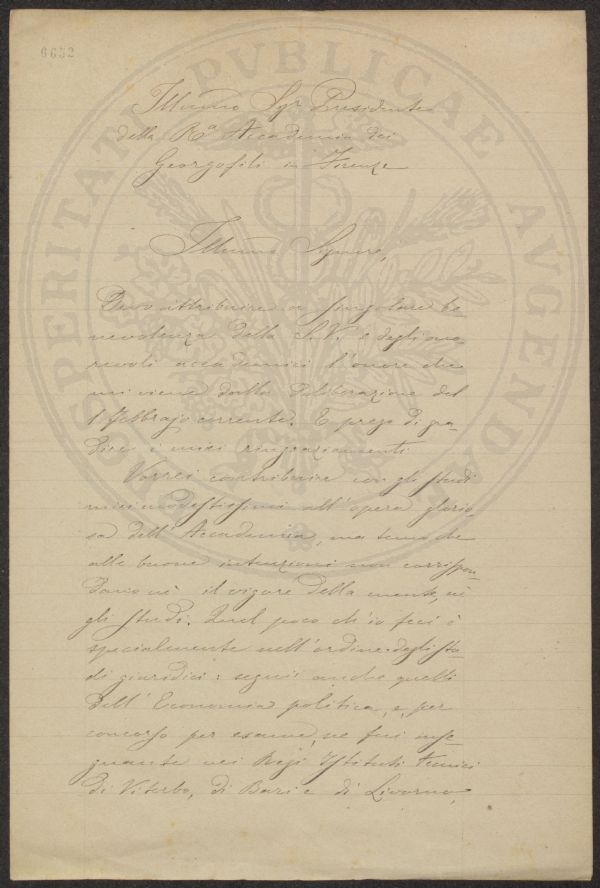 6632
Illmo Sigr Presidente
della Ra Accademia dei
Georgofili in Firenze
Illmo Signore,
Devo attribuire a singolare be
nevolenza della S. V. e degli ono
revoli accademici l'onore che
mi viene dalla deliberazione del
1 Febbrajo corrente. E prego di gra-
dire i miei ringraziamenti
Vorrei contribuire con gli studi
miei modestissimi all'opera glorio-
sa dell'Accademia, ma temo che
alle buone intenzioni non corrispon-
dano nè il vigore della mente, nè
gli studi. Quel poco ch'io feci è
specialmente nell'ordine degli stu-
di giuridici: seguii anche quelli
dell'Economia politica, e, per
concorso per esame, ne fui inse-
gnante nei Regi Istituti tecnici
di Viterbo, di Bari e di Livorno,
PROSPERITATI PVBLICAE AVGENDAE